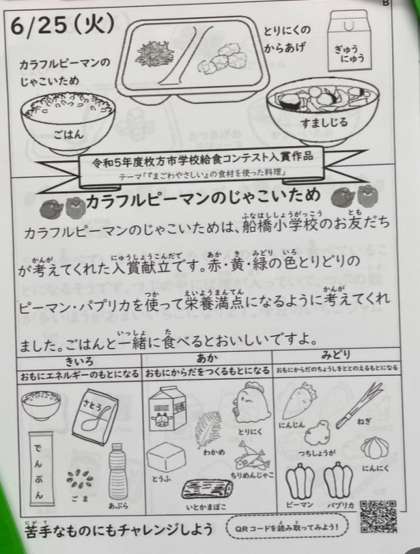 B
6/25(火)
とりにくの
からあげ
ぎゅう
にゅう
カラフルピーマンの
じゃこいため
ごはん
すましじる
令和5年度枚方市学校給食コンテスト入賞作品
テーマ「『まごわやさしい』の食材を使った料理」
カラフルピーマンのじゃこいため
カラフルピーマンのじゃこいためは、船橋小学校のお友だち
が考えてくれた入賞献立です。赤・黄・緑の色とりどりの
ピーマン・パプリカを使って栄養満点になるように考えてくれ
ました。ごはんと一緒に食べるとおいしいですよ。
きいろ
あか
みどり
おもにエネルギーのもとになる
おもにからだをつくるもとになる
おもにからだのちょうしをととのえるもとになる
さとう
でんぷん
ごま
あぶら
とうふ
わかめ
とりにく
ちりめんじゃこ
いとかまぼこ
にんじん
ねぎ
つちしょうが
にんにく
ピーマン
パプリカ
苦手なものにもチャレンジしよう
QRコードを読み取ってみよう!